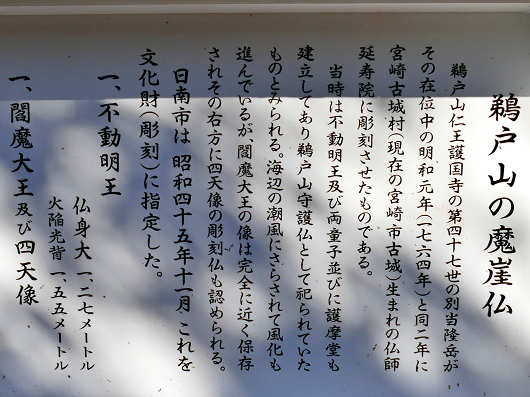 鵜戸山の魔崖仏
鵜戸山仁王護国寺の第四十七世の別当隆岳が
その在位中の明和元年(一七六四年)と同二年に
宮崎古城村(現在の宮崎市古城)生まれの仏師
延寿院に彫刻させたものである。
当時は不動明王及び両童子並びに護摩堂も
建立してあり鵜戸山守護仏として祀られていた
ものとみられる。海辺の潮風にさらされて風化も
進んでいるが、閻魔大王の像は完全に近く保存
されその右方に四天像の彫刻仏も認められる。
日南市は昭和四十五年十一月これを
文化財(彫刻)に指定した。
一、不動明王
仏身大 一、二七メートル
火陥光背 一、五五メートル、
一、閻魔大王及び四天像